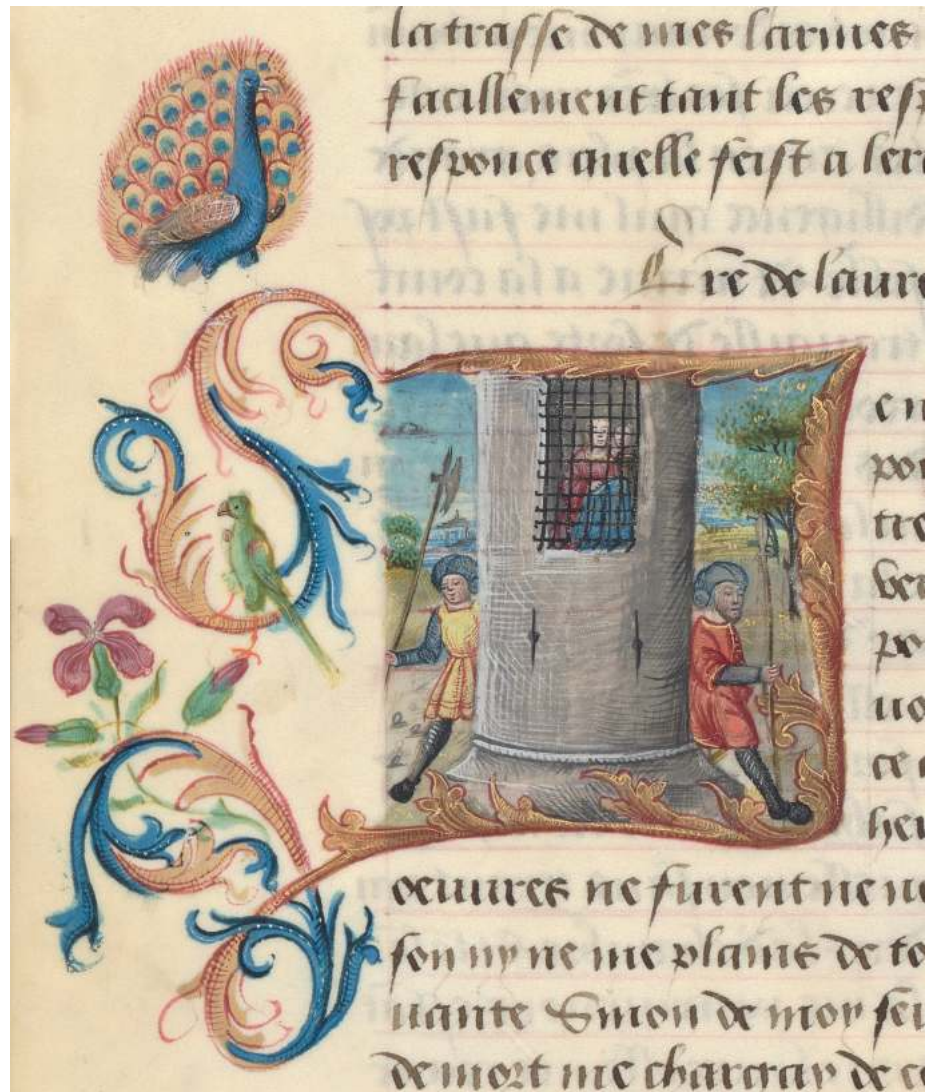 la trasse de mes larmes
facillement tant les resp
responce quelle feist a lere
Lr̃e de laure
en
pou
tre
ver
po
uo
ce
heu
oeuures ne furent ne ue
son ny ne me plains de to
uante Sinon de moy seu
de mort me chargay de ce